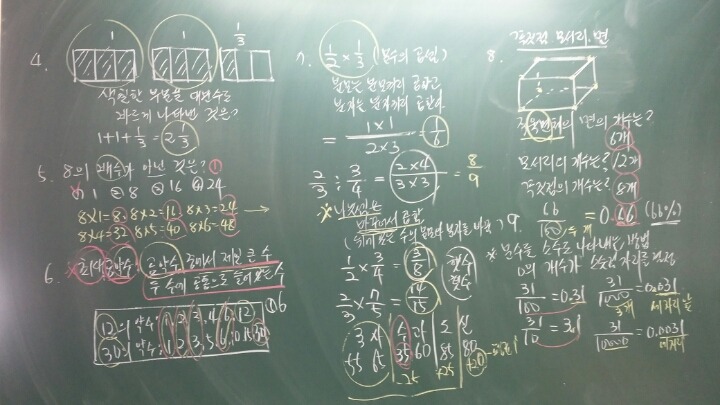 4.
1 1 1/3
색칠한 부분을 대분수로
바르게 나타낸 것은?
1+1+1/3 = 2 1/3
5. 8의 배수가 아닌 것은? ①
① 1 ② 8 ③ 16 ④ 24
8×1=8, 8×2=16 8×3=24 →
8×4=32 8×5=40 8×6=48
6. 최대공약수: 공약수 중에서 제일 큰 수
두 수에 공통으로 들어있는 수
① 6
12의 약수: 1, 2, 3, 4, 6, 12
30의 약수: 1, 2, 3, 5, 6, 10, 15, 30
7. 1/2 × 1/3 (분수의 곱셈)
분모는 분모끼리 곱하고
분자는 분자끼리 곱한다.
= 1×1 / 2×3 = 1/6
2/3 ÷ 3/4 = 2×4 / 3×3 = 8/9
※ 나눗셈은
바꾸어서 곱함
1/2 × 3/4 = 3/8
2/3 × 7/5 = 14/15
3 사 소 과
55 65 35 60 85 80
-25 +25 +20
8. 꼭짓점, 모서리, 면
직육면체의 면의 개수는?
6개
모서리의 개수는? 12개
꼭짓점의 개수는? 8개
9. 66/100 = 0.66 (66%)
※ 분수를 소수로 나타내는 방법
0의 개수가 소수점 자리를 결정
31/100 = 0.31 31/1000 = 0.031
31/10 = 3.1 31/10000 = 0.0031